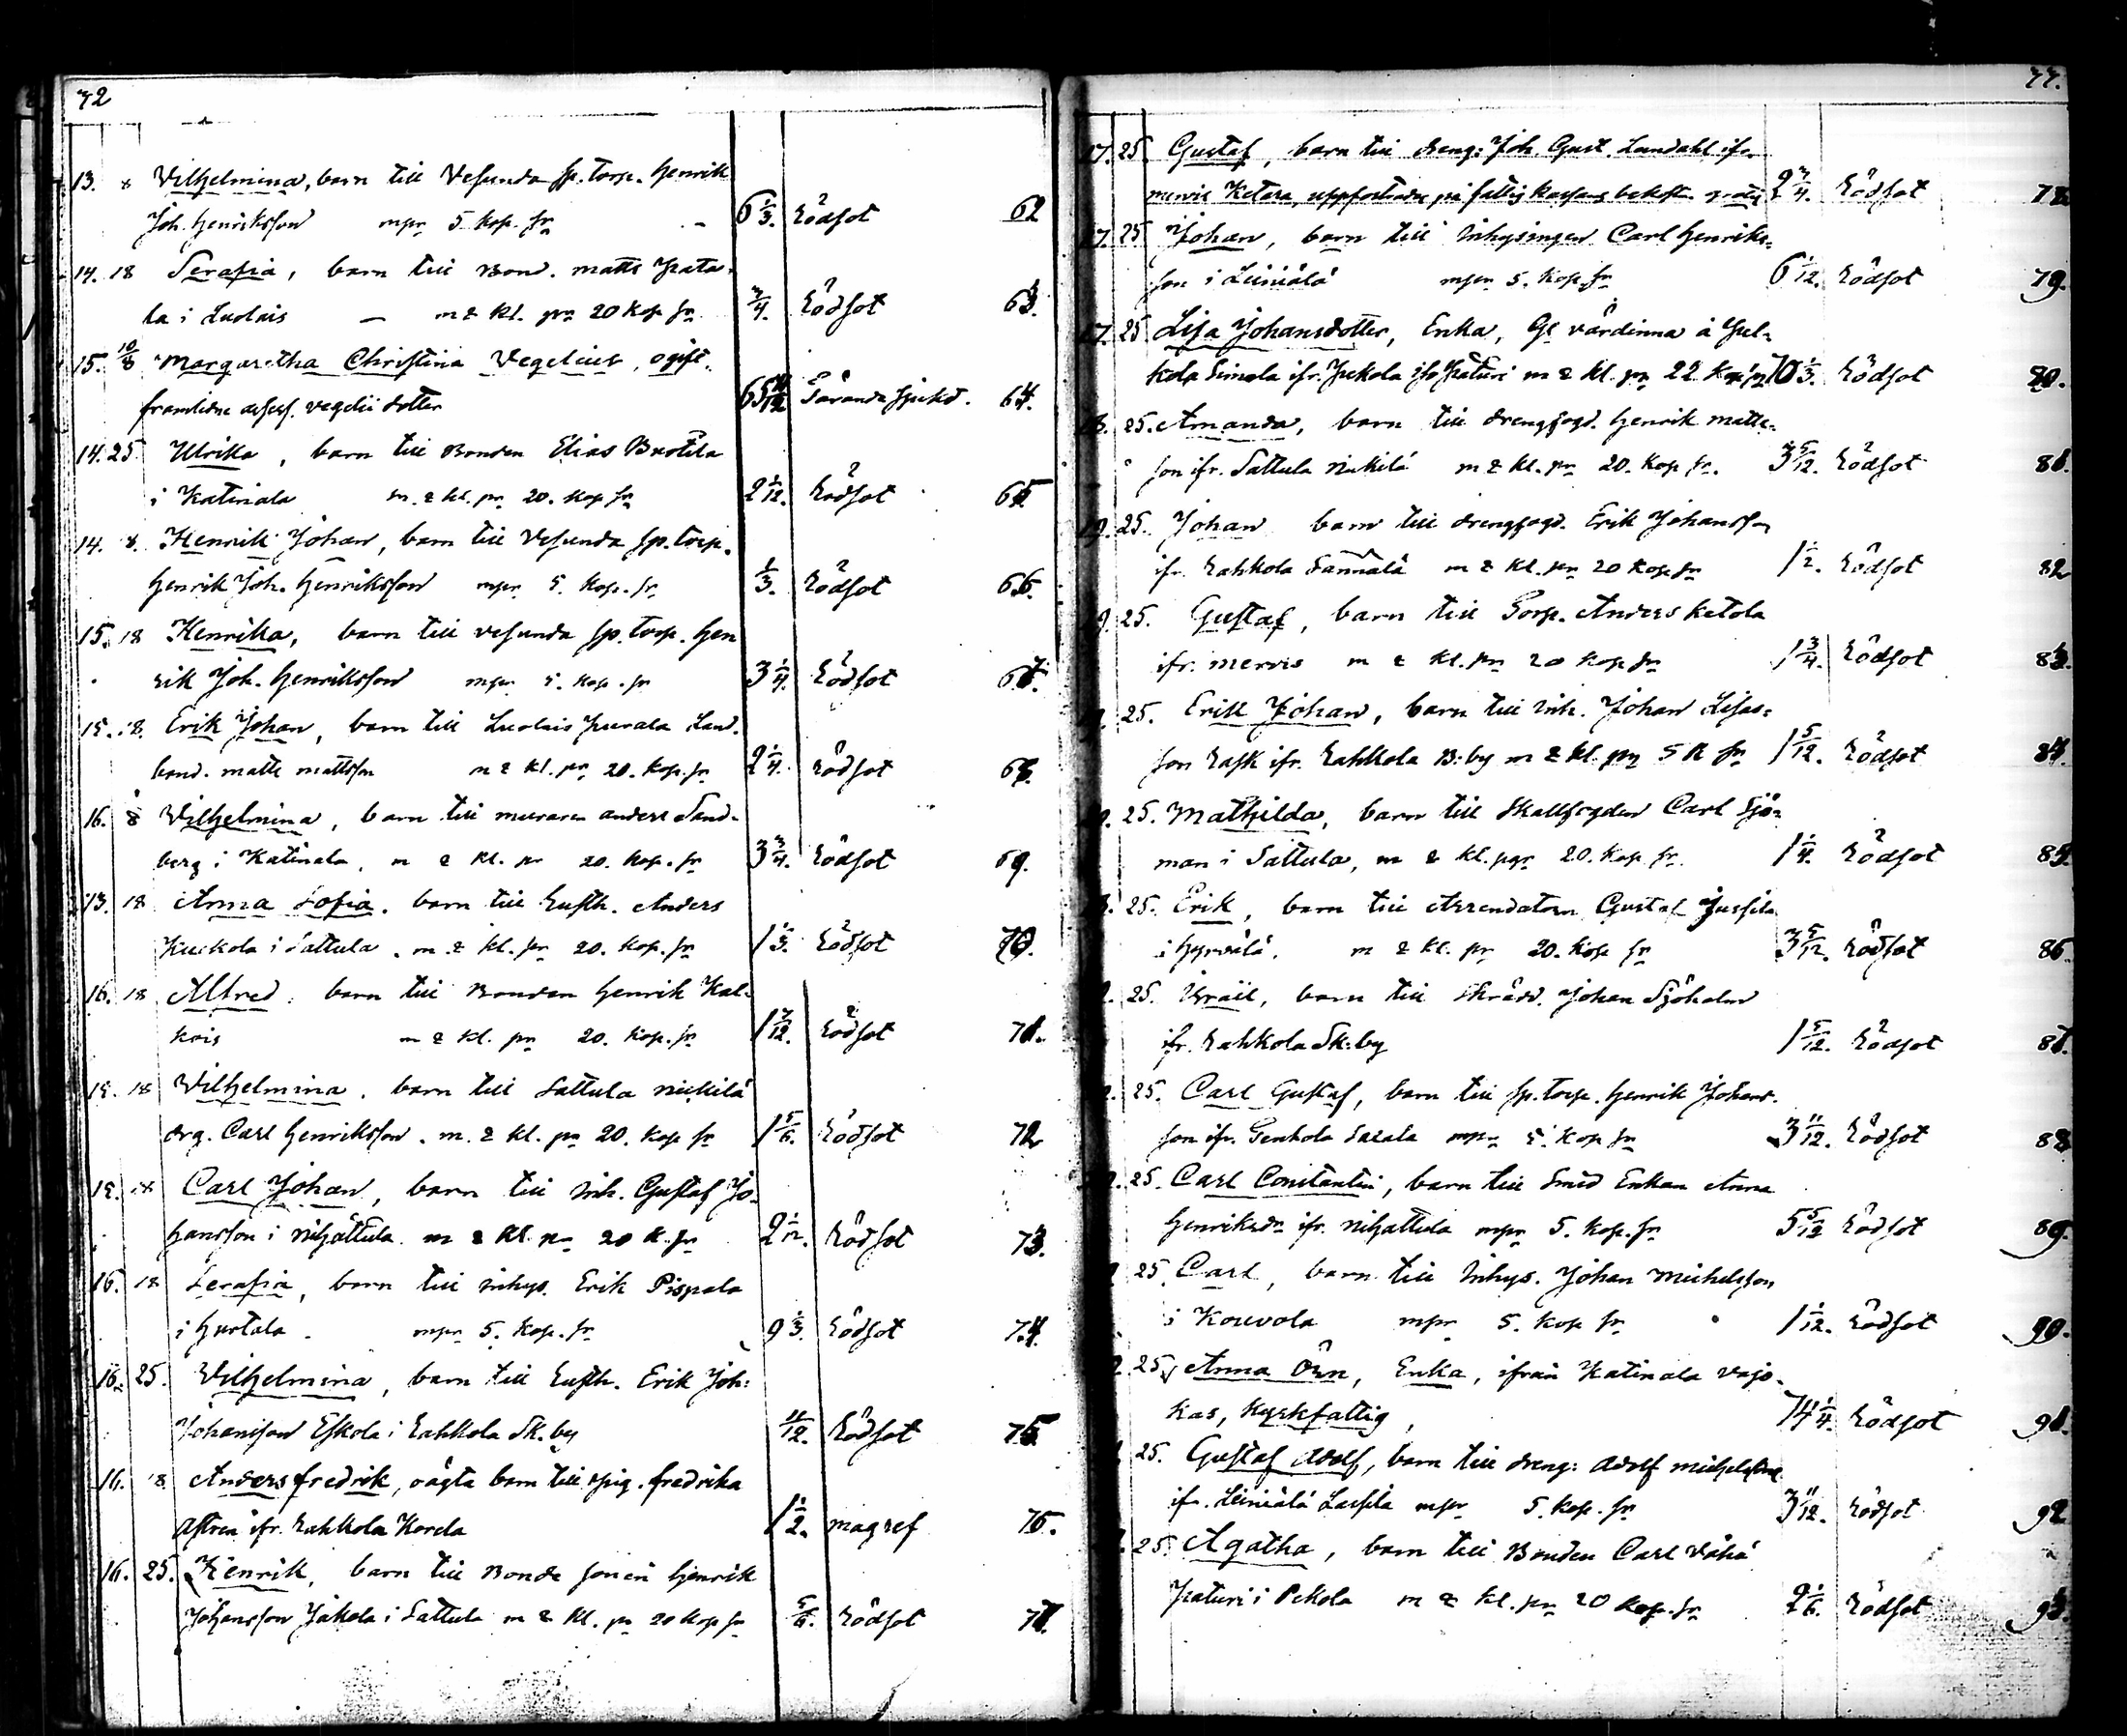 72
13. 8 Vilhelmina, barn till Vesunda sp. torp. Henrik
Joh. Henriksson mpr 5 kop. sr - 6 1/3. Rödsot 62
14. 18 Serafia, barn till Bond. Matts
la i Luolais — m 2 kl. pr 20 kop sr 3/4. Rödsot 63.
15. 10/8 Margaretha Christina Vegelius, ogift,
framlidne vegelii dotter 65 10/12 64.
14. 25 Ulrika, barn till Bonden Elias
i Katinala m. 2 kl. pr 20. kop sr 2 1/12. Rödsot 65
14. 8. Henrik Johan, barn till Vesunda sp. torp.
Henrik Joh. Henriksson mpr 5. kop. sr 1/3. Rödsot 66.
15. 18 Henrika, barn till Vesunda sp. torp. Hen
rik Joh. Henriksson mpr 5. kop. sr 3 1/4. Rödsot 67.
15. 18. Erik Johan, barn till Luolais Land.
bond. Matts Mattsson m 2 kl. pr 20. kop. sr 2 1/4. Rödsot 68.
16. 8 Vilhelmina, barn till muraren Anders Sand-
berg i Katinala, m 2 kl. pr 20. kop. sr 3 3/4. Rödsot 69.
13. 18 Anna Sofia. barn till Rusth. Anders
Kuckola i Sattula. m. 2 kl. pr 20. kop. sr Rödsot 70.
16. 18 Alfred. barn till Bonden Henrik Kal-
kois m 2 kl. pr 20. kop. sr 1 7/12. Rödsot 71.
15. 18 Vilhelmina. barn till Sattula Nickilä
drg. Carl Henriksson. m. 2 kl. pr 20. kop sr 1 5/6. Rödsot 72
15. 18 Carl Johan, barn till Inh. Gustaf Jo-
hansson i Nihattula. m 2 kl. pr 20 k. sr 2 1/12. Rödsot 73.
16. 18 Serafia, barn till inhys. Erik Pispala
i Hurtala. mpr 5. kop. sr 9 1/3. Rödsot 74.
16. 25. Vilhelmina, barn till Rusth. Erik Joh:
Johansson Eskola i Rahkola Sk.by 11/12. Rödsot 75
16. 18 Anders fredrik, oägta barn till pig. fredrika
ifr. Rahkola 1 1/2. magref 76.
16. 25. Henrik, barn till Bonde sonen Henrik
Johansson Jakola i Sattula m 2 kl. pr 20 kop sr 5/6. Rödsot 77.
77.
17. 25 Gustaf, barn till dreng: Joh. Gust. Landahl ifr.
Mervis Ketara, uppfostrades på fattig kassans bekostn. 2 3/4. Rödsot 78
17. 25 Johan, barn till Inhysingen Carl Henriks-
son i Leiniälä mpr 5. kop. sr 6 1/12. Rödsot 79.
17. 25 Lisa Johansdotter, Enka, Gl värdinna å
kola Simola ifr. m 2 kl. pr 22 70 1/3. Rödsot 80.
18. 25. Amanda, barn till drengfogd. Henrik Matts-
son ifr. Sattula Nickilä m 2 kl. pr 20. kop sr. 3 5/12. Rödsot 81.
19. 25. Johan barn till drengfogd. Erik Johansson
ifr. Rahkola Sannälä m 2 kl. pr 20 kop sr 1 1/2. Rödsot 82
9. 25. Gustaf, barn till Torp. Anders Ketola
ifr. Mervis m 2 kl. pr 20 kop sr 1 3/4. Rödsot 83.
25. Erik Johan, barn till Inh. Johan
son Rask ifr. Rahkola B:by m 2 kl. pr 5 k sr 1 5/12. Rödsot 84.
25. Mathilda, barn till Skallfogden Carl Sjö-
man i Sattula, m 2 kl. pr 20. kop sr. 1 1/4. Rödsot 85.
25. Erik, barn till Arrendatorn Gustaf Jussila
i Hyrvälä. m 2 kl. pr 20. kop sr 3 5/12. Rödsot 86.
25. Israil, barn till Skrädd. Johan Sjöholm
ifr. Rahkola Sk:by 1 5/12. Rödsot 87.
25. Carl Gustaf, barn till sp. torp. Henrik Johans-
son ifr. mpr 5. kop sr 3 11/12. Rödsot 88
25. Carl Constantin, barn till Smed Enkan Anna
Henriksdr ifr. Nihattula mpr 5. kop. sr 5 5/12 Rödsot 89.
25. Carl, barn till Inhys. Johan Michelsson
i Kouvola mpr 5. kop sr 1 1/12. Rödsot 90.
25. Anna Örn, Enka, ifrån Katinala
kas, kyrkfattig, 74 1/4. Rödsot 91.
25. Gustaf Adolf, barn till dreng: Adolf Michelsson
ifr. Leiniälä Lassila mpr 5. kop. sr 3 11/12. Rödsot 92
25. Agatha, barn till Bonden Carl Vähä
i Pekola m 2 kl. pr 20 kop. sr 2 1/6. Rödsot 93.